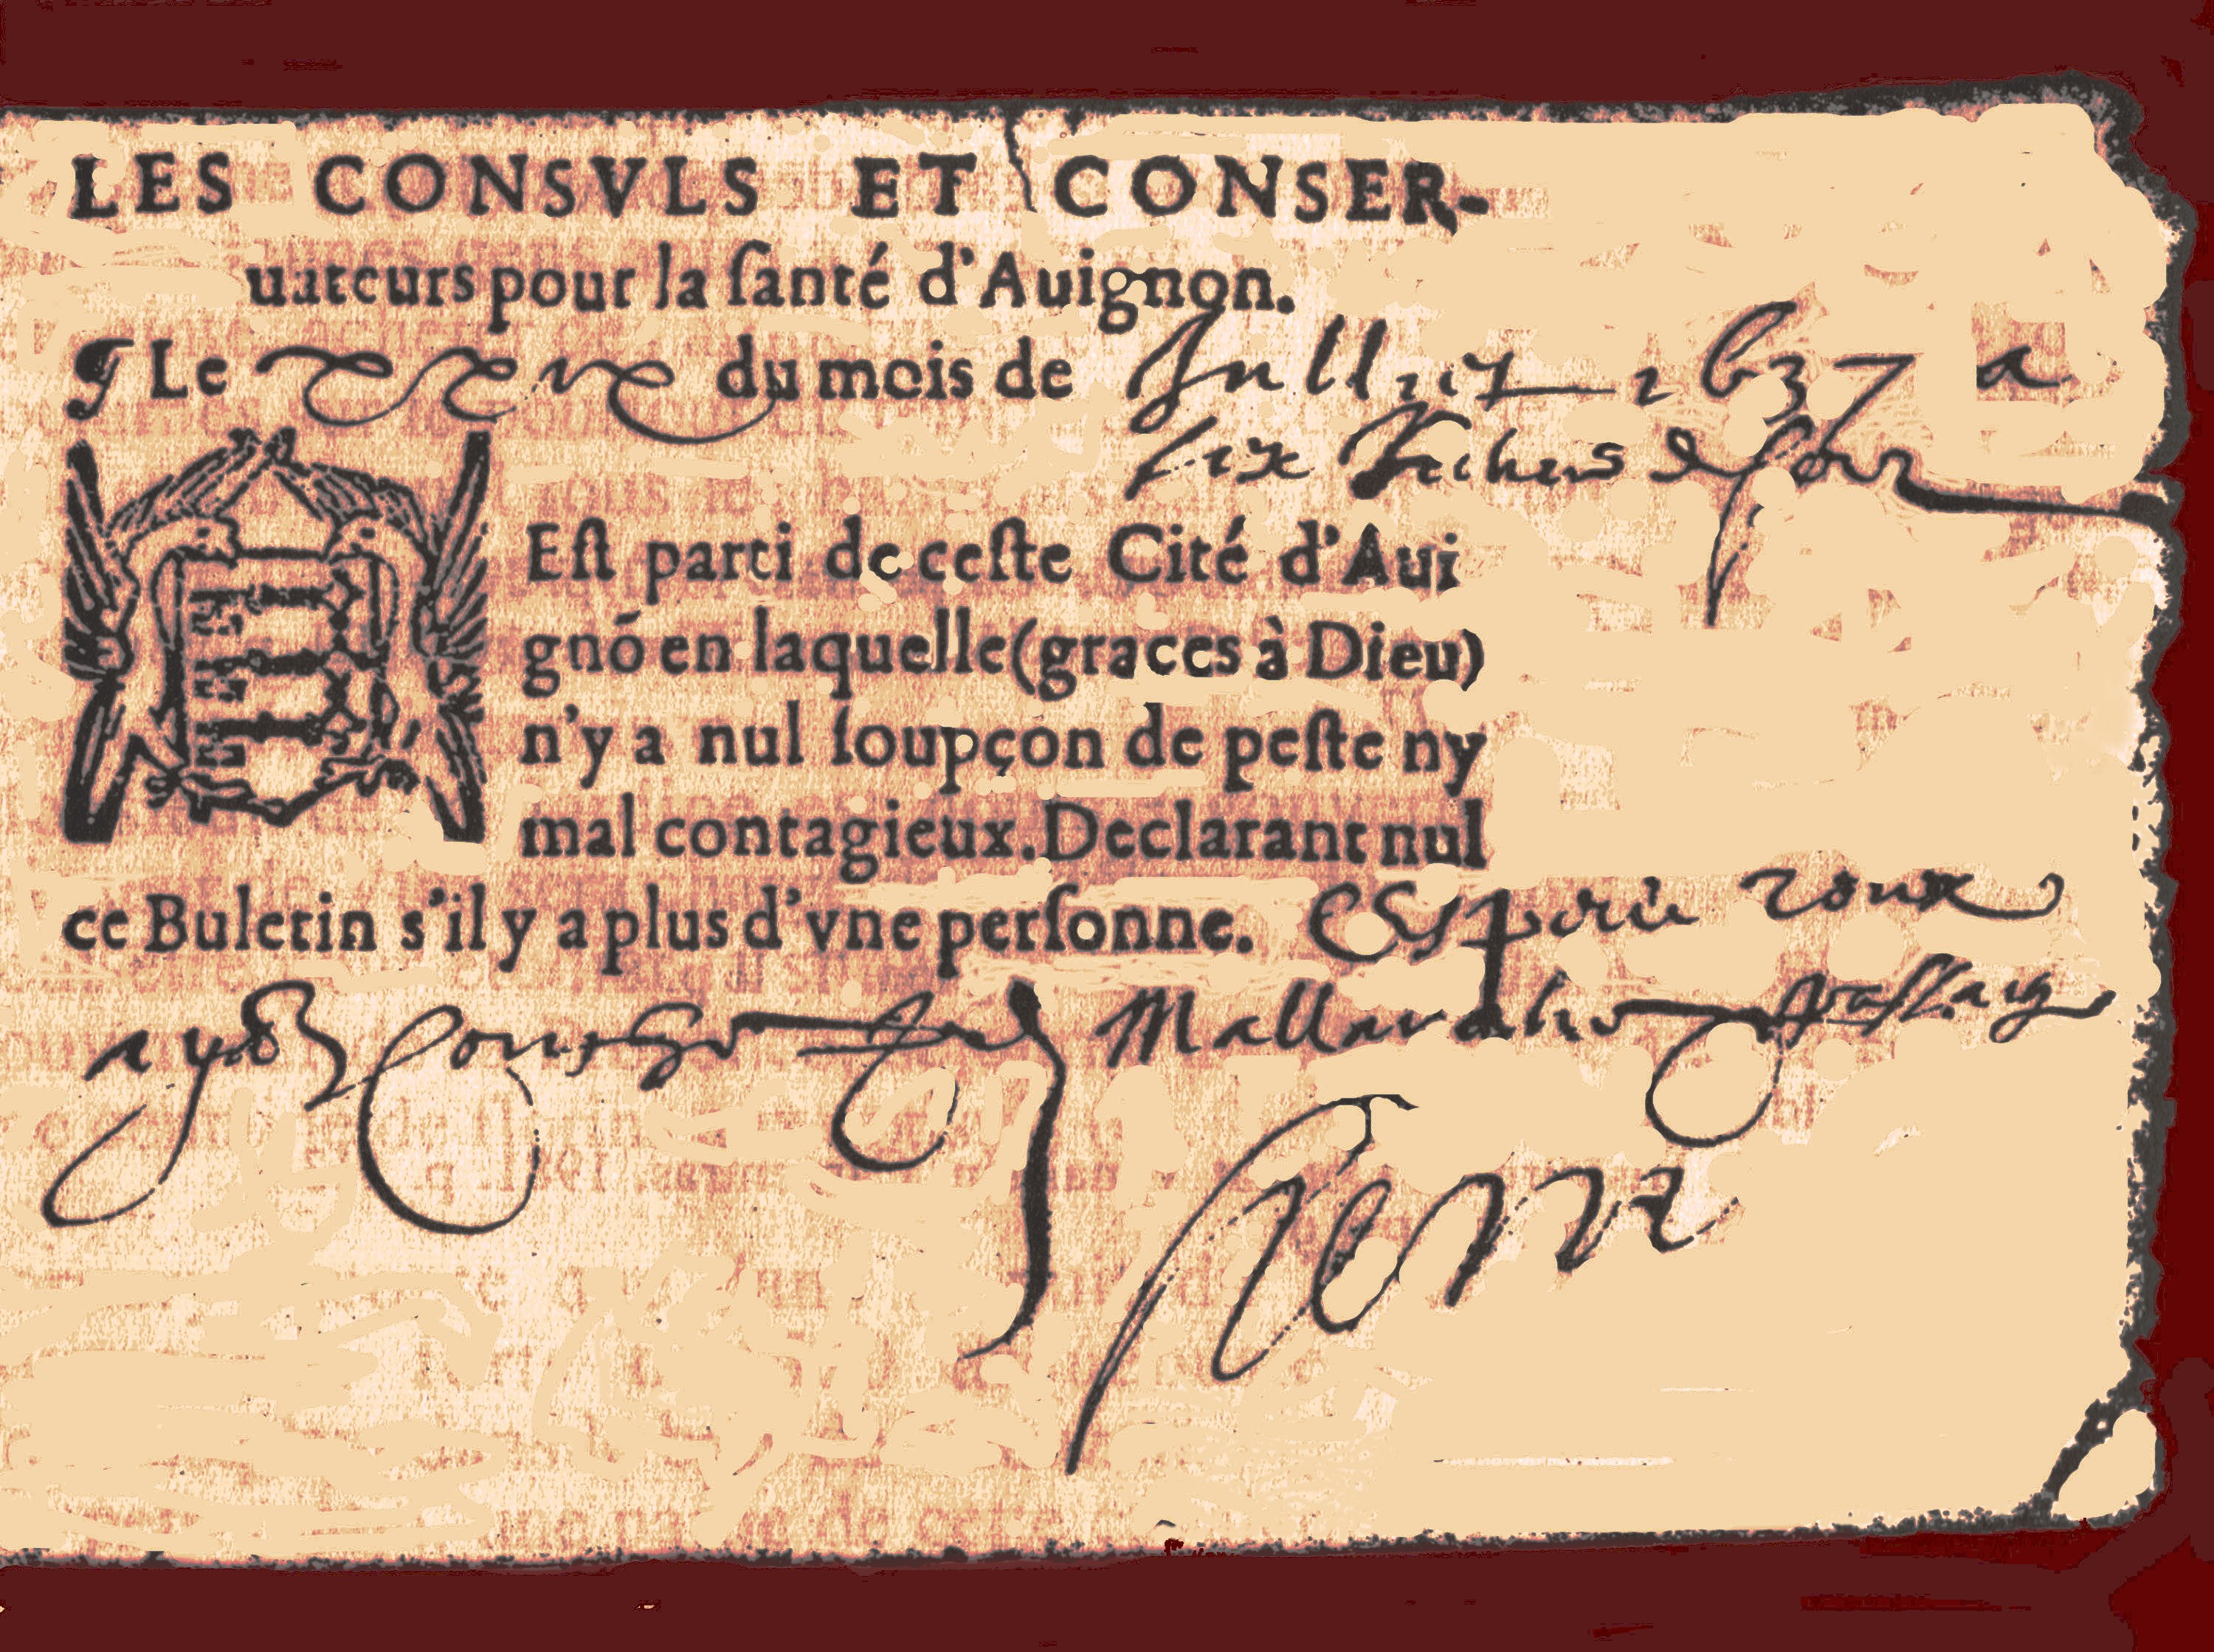 LES CONSVLS ET CONSER-
uateurs pour la ſanté d'Auignon.
¶ Le du mois de Julliet 1637 a
ſix heures
Eſt parti de ceſte Cité d'Aui
gnó en laquelle (graces à Dieu)
n'y a nul ſoupçon de peſte ny
mal contagieux. Declarant nul
ce Buletin s'il y a plus d'vne perſonne. Esperit roux